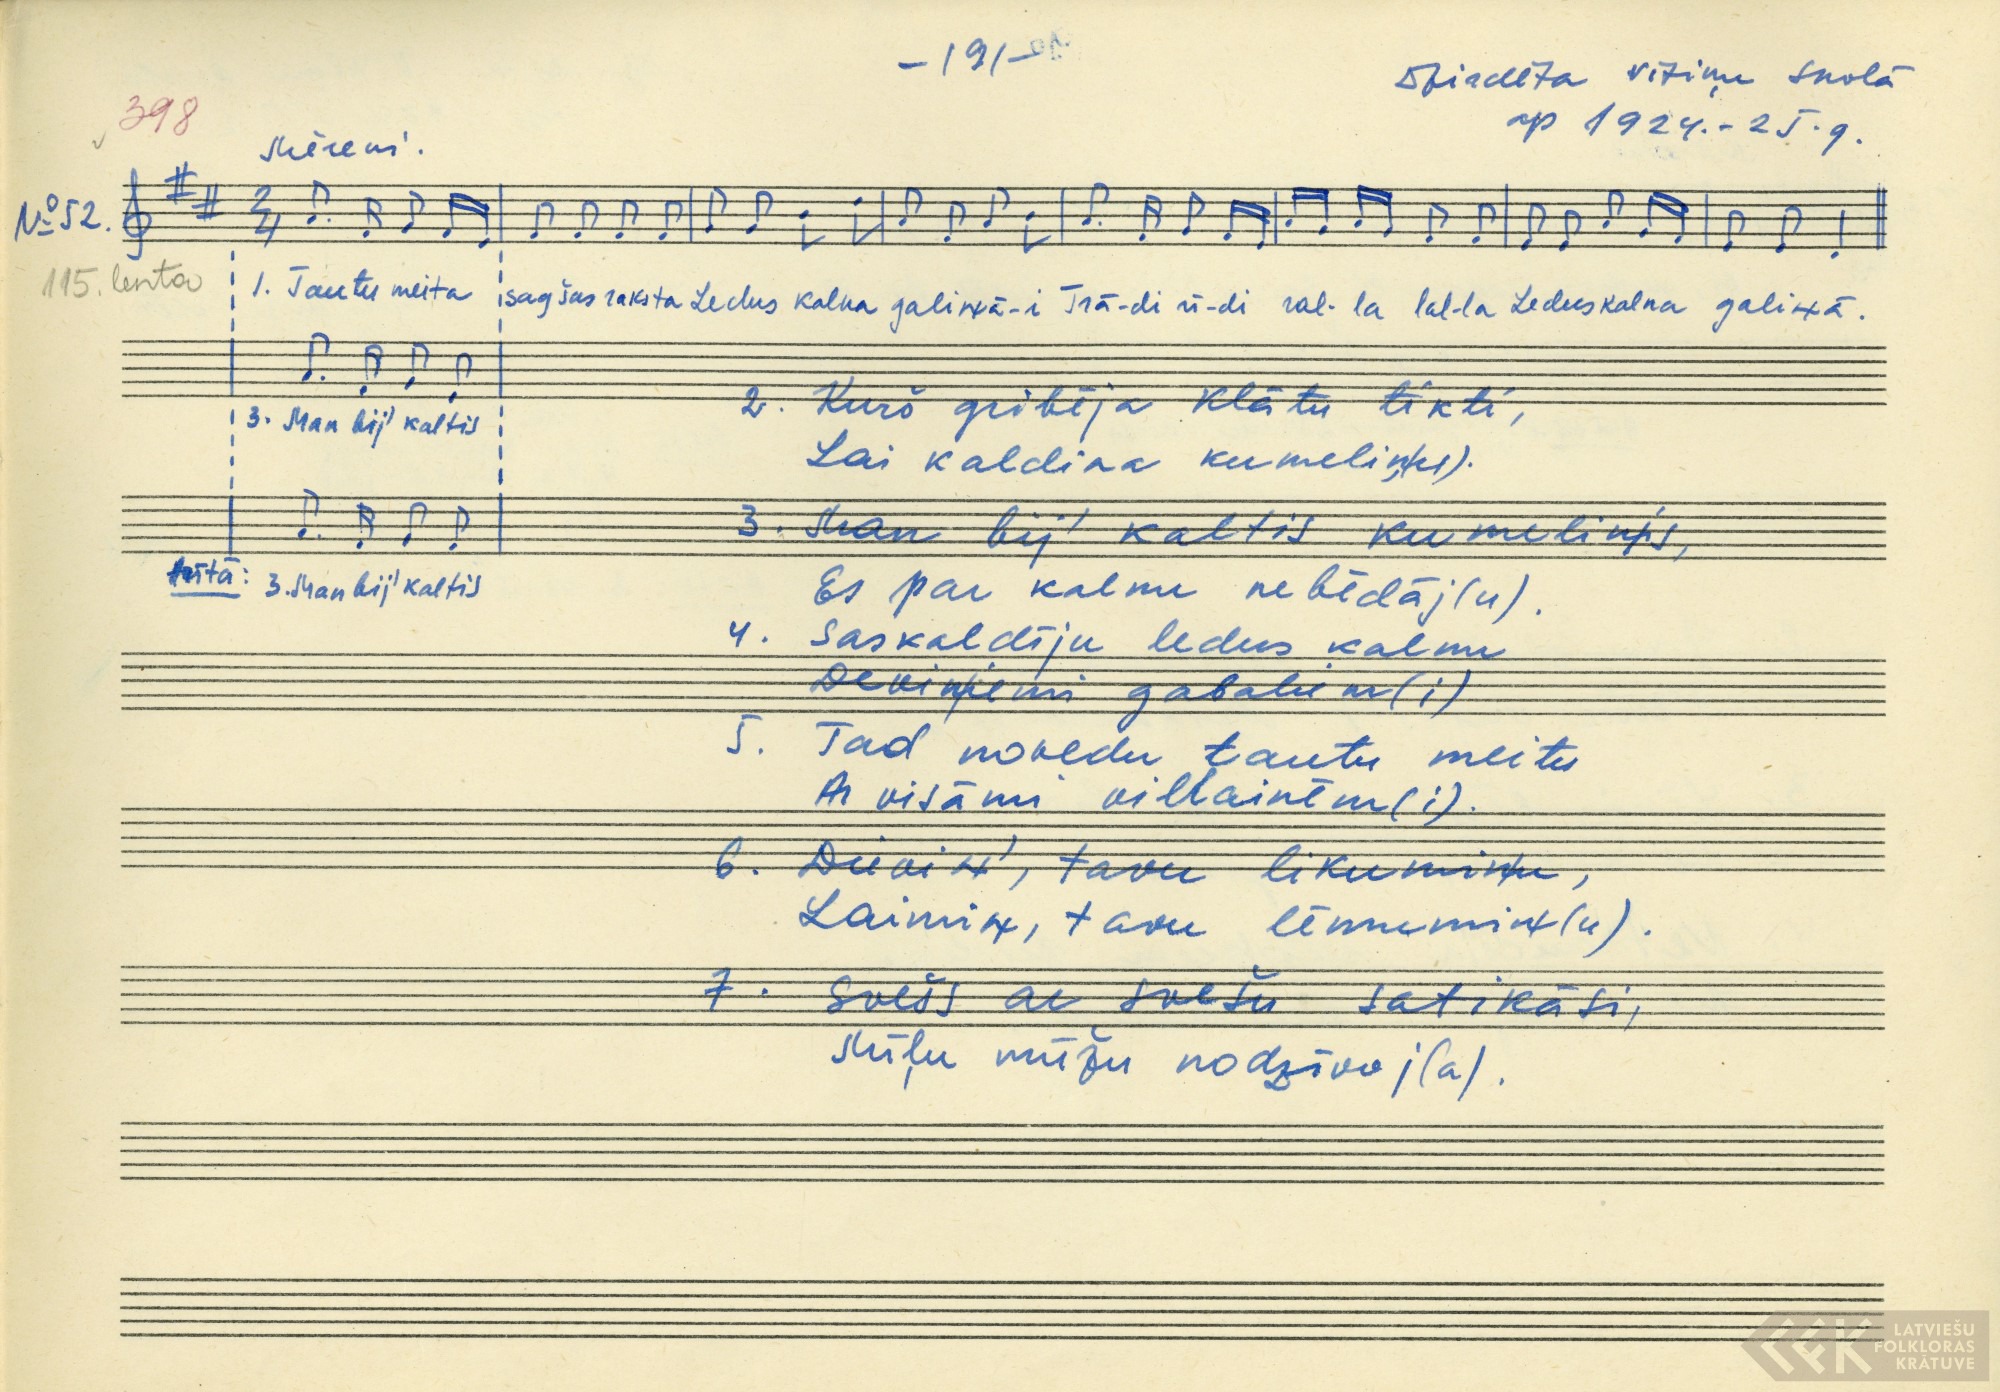 -191-
Dziedēta vīziņu skolā
ap 1924.-25.g.
398
Mēreni.
№ 52.
115. lenta
1. Tautu meita sagšas raksta Ledus kalna galiņā-i Trā-di rī-di ral-la lal-la Ledus kalna galiņā.
3. Man bij' kaltis
2. Kurš gribēja klātu tikti,
Lai kaldina kumeliņ(u).
3. Man bij' kaltis kumeliņis,
Es par kalnu nebēdāj(u).
3. Man bij' kaltis
4. Saskaldīju ledus kalnu
Deviņiemi gabaliem(i)
5. Tad novedu tautu meitu
Ar visāmi villainēm(i).
6. Dieviņ', tavu likumiņu,
Laimiņ, tavu lēmumiņ(u).
7. Svešs ar svešu satikāsi,
Mīļu mūžu nodzīvoj(a).
LATVIEŠU
FOLKLORAS
KRĀTUVE